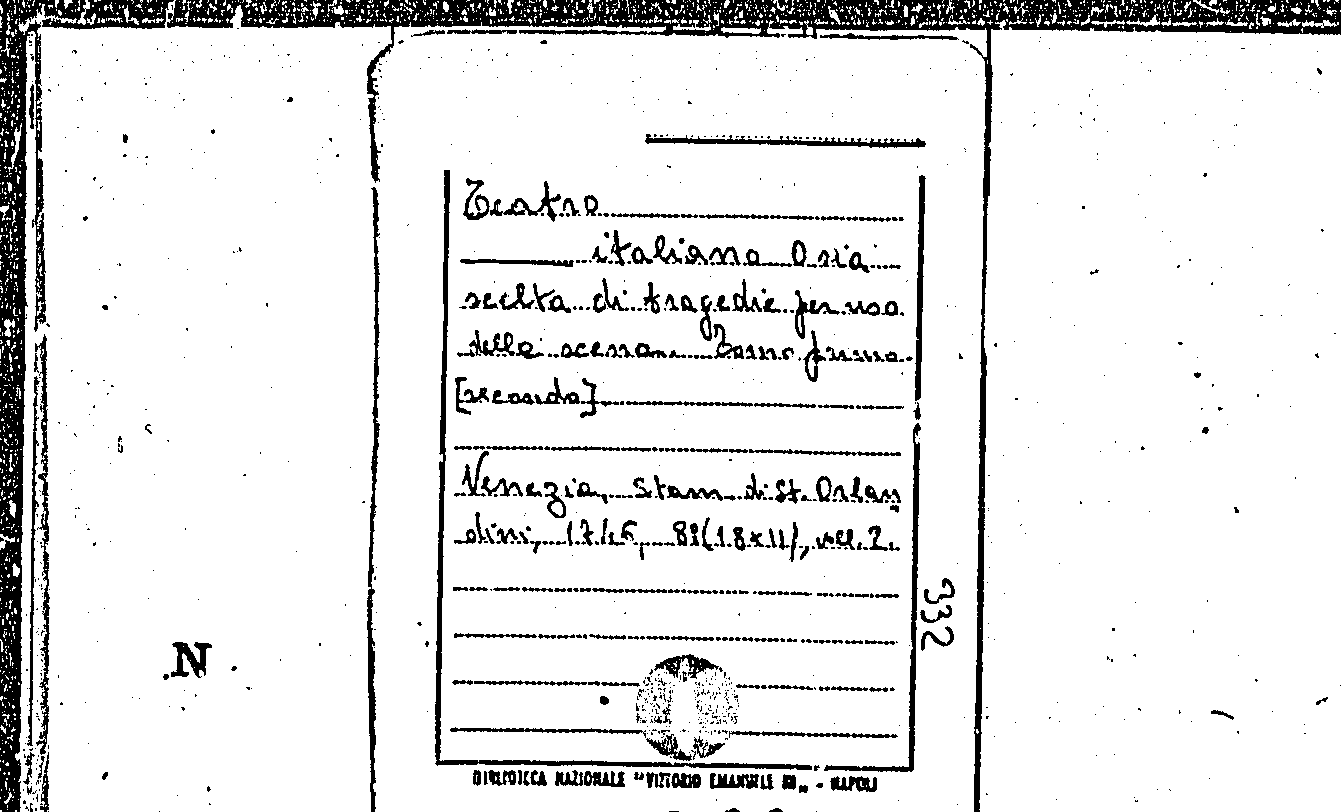 Teatro
italiano O sia
scelta di tragedie per uso
della scena. Tomo primo
[secondo]
Venezia, Stam. di St. Orlan
dini, 1746, 8º(18x11), voll. 2.
332
N
BIBLIOTECA NAZIONALE "VITTORIO EMANUELE III„ - NAPOLI